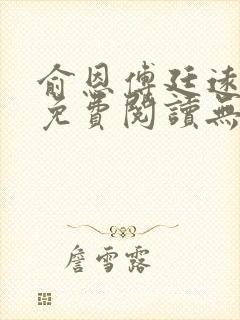 俞恩傅廷遠
免費閱讀無
詹雪露